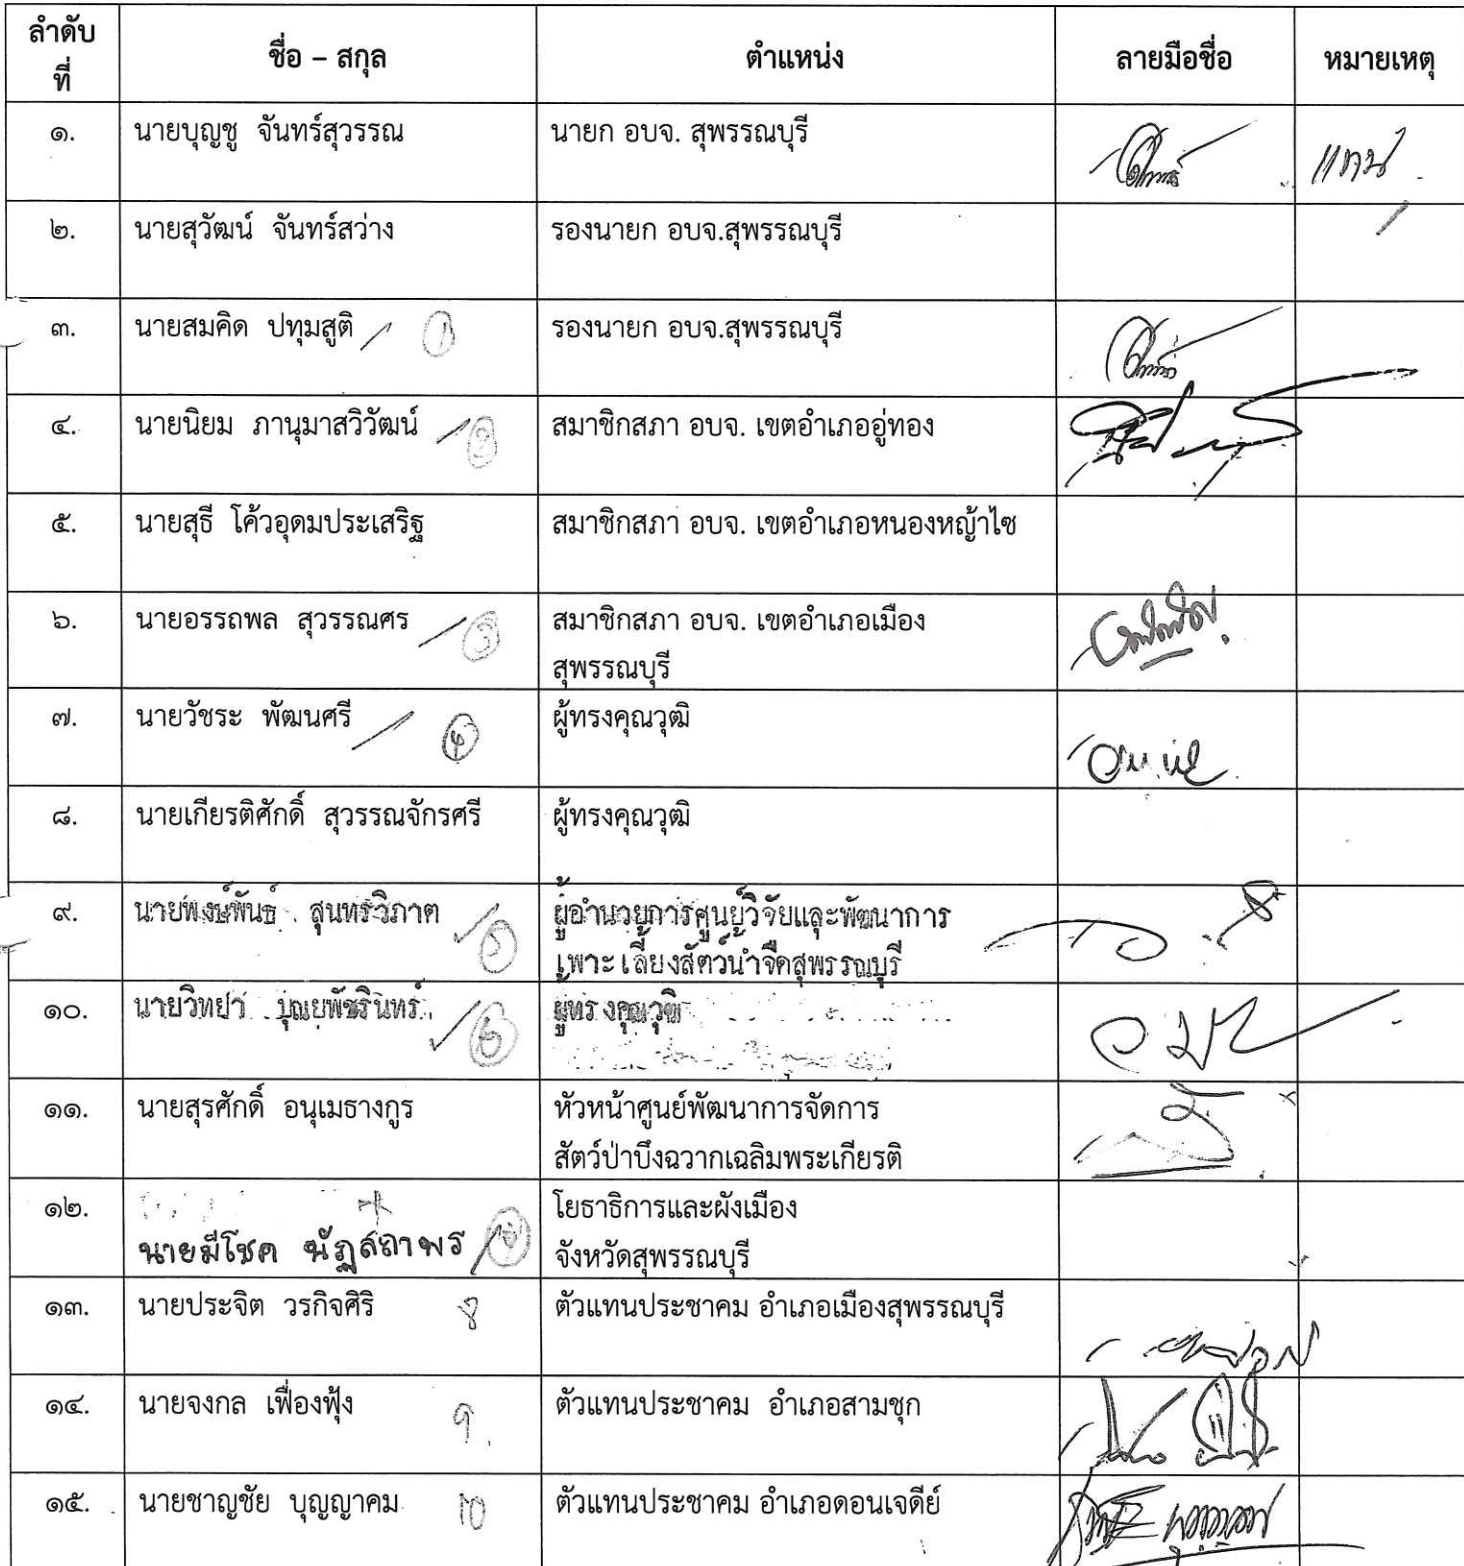 ลำดับ
ที่
ชื่อ – สกุล
ตำแหน่ง
ลายมือชื่อ
หมายเหตุ
๑. นายบุญชู จันทร์สุวรรณ นายก อบจ. สุพรรณบุรี แทน
๒. นายสุวัฒน์ จันทร์สว่าง รองนายก อบจ.สุพรรณบุรี
๓. นายสมคิด ปทุมสูติ 1 รองนายก อบจ.สุพรรณบุรี
๔. นายนิยม ภานุมาสวิวัฒน์ 2 สมาชิกสภา อบจ. เขตอำเภออู่ทอง
๕. นายสุธี โค้วอุดมประเสริฐ สมาชิกสภา อบจ. เขตอำเภอหนองหญ้าไซ
๖. นายอรรถพล สุวรรณศร 3 สมาชิกสภา อบจ. เขตอำเภอเมือง
สุพรรณบุรี
๗. นายวัชระ พัฒนศรี 4 ผู้ทรงคุณวุฒิ
๘. นายเกียรติศักดิ์ สุวรรณจักรศรี ผู้ทรงคุณวุฒิ
๙. นายพงษ์พันธ์ สุนทรวิภาต 5 ผู้อำนวยการศูนย์วิจัยและพัฒนาการ
เพาะเลี้ยงสัตว์น้ำจืดสุพรรณบุรี
๑๐. นายวิทยา บุณยพัชรินทร์ 6 ผู้ทรงคุณวุฒิ
๑๑. นายสุรศักดิ์ อนุเมธางกูร หัวหน้าศูนย์พัฒนาการจัดการ
สัตว์ป่าบึงฉวากเฉลิมพระเกียรติ
๑๒. โยธาธิการและผังเมือง
นายมีโชค นัฏสถาพร จังหวัดสุพรรณบุรี
๑๓. นายประจิต วรกิจศิริ 8 ตัวแทนประชาคม อำเภอเมืองสุพรรณบุรี
๑๔. นายจงกล เฟื่องฟุ้ง 9. ตัวแทนประชาคม อำเภอสามชุก
๑๕. นายชาญชัย บุญญาคม 10 ตัวแทนประชาคม อำเภอดอนเจดีย์